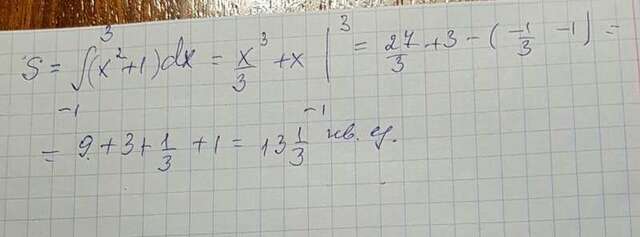 S = ∫₋₁³ (x²+1)dx = x³/3 + x |₋₁³ = 27/3 + 3 - (-1/3 - 1) =
= 9 + 3 + 1/3 + 1 = 13 1/3 кв. ед.